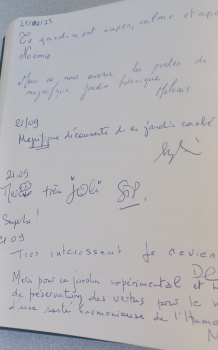 21/09/23
Ce jardin est super, calme et apai
Noémie
Merci de nous ouvrir les portes de
magnifique jardin botanique
Mélanie
21/09
Magnifique découverte de ce jardin caché
21.09
Merci très "JOLI"
Superbe!
21.09
Très intéressant Je revien
Merci pour ce jardin expérimental et
de préservation des vertus pour le
d'une santé harmonieuse de l'Huma